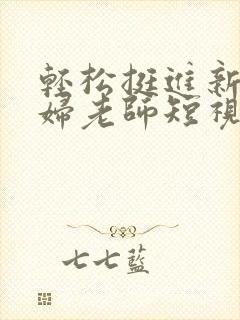 輕松挺進新
婦老師短視
七七藍